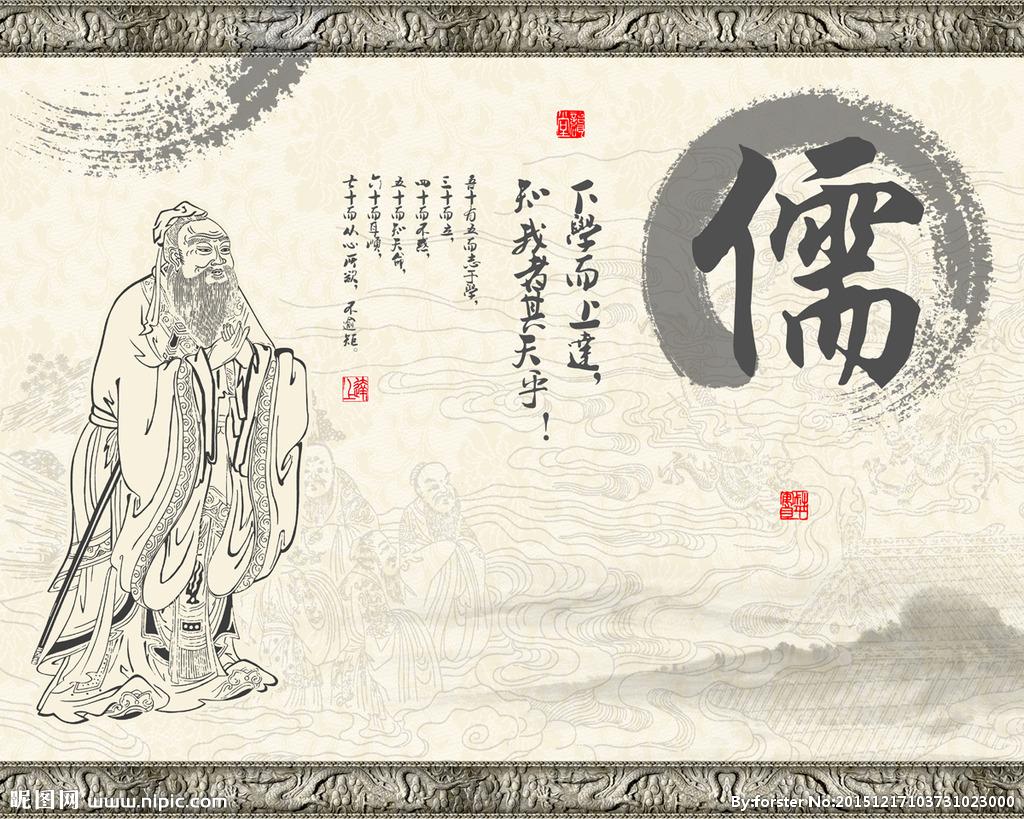 儒
下學而上達，
知我者其天乎！
吾十有五而志于學，
三十而立，
四十而不惑，
五十而知天命，
六十而耳順，
七十而从心所欲，不逾矩。
上達
昵图网 www.nipic.com
By:forster No:20151217103731023000